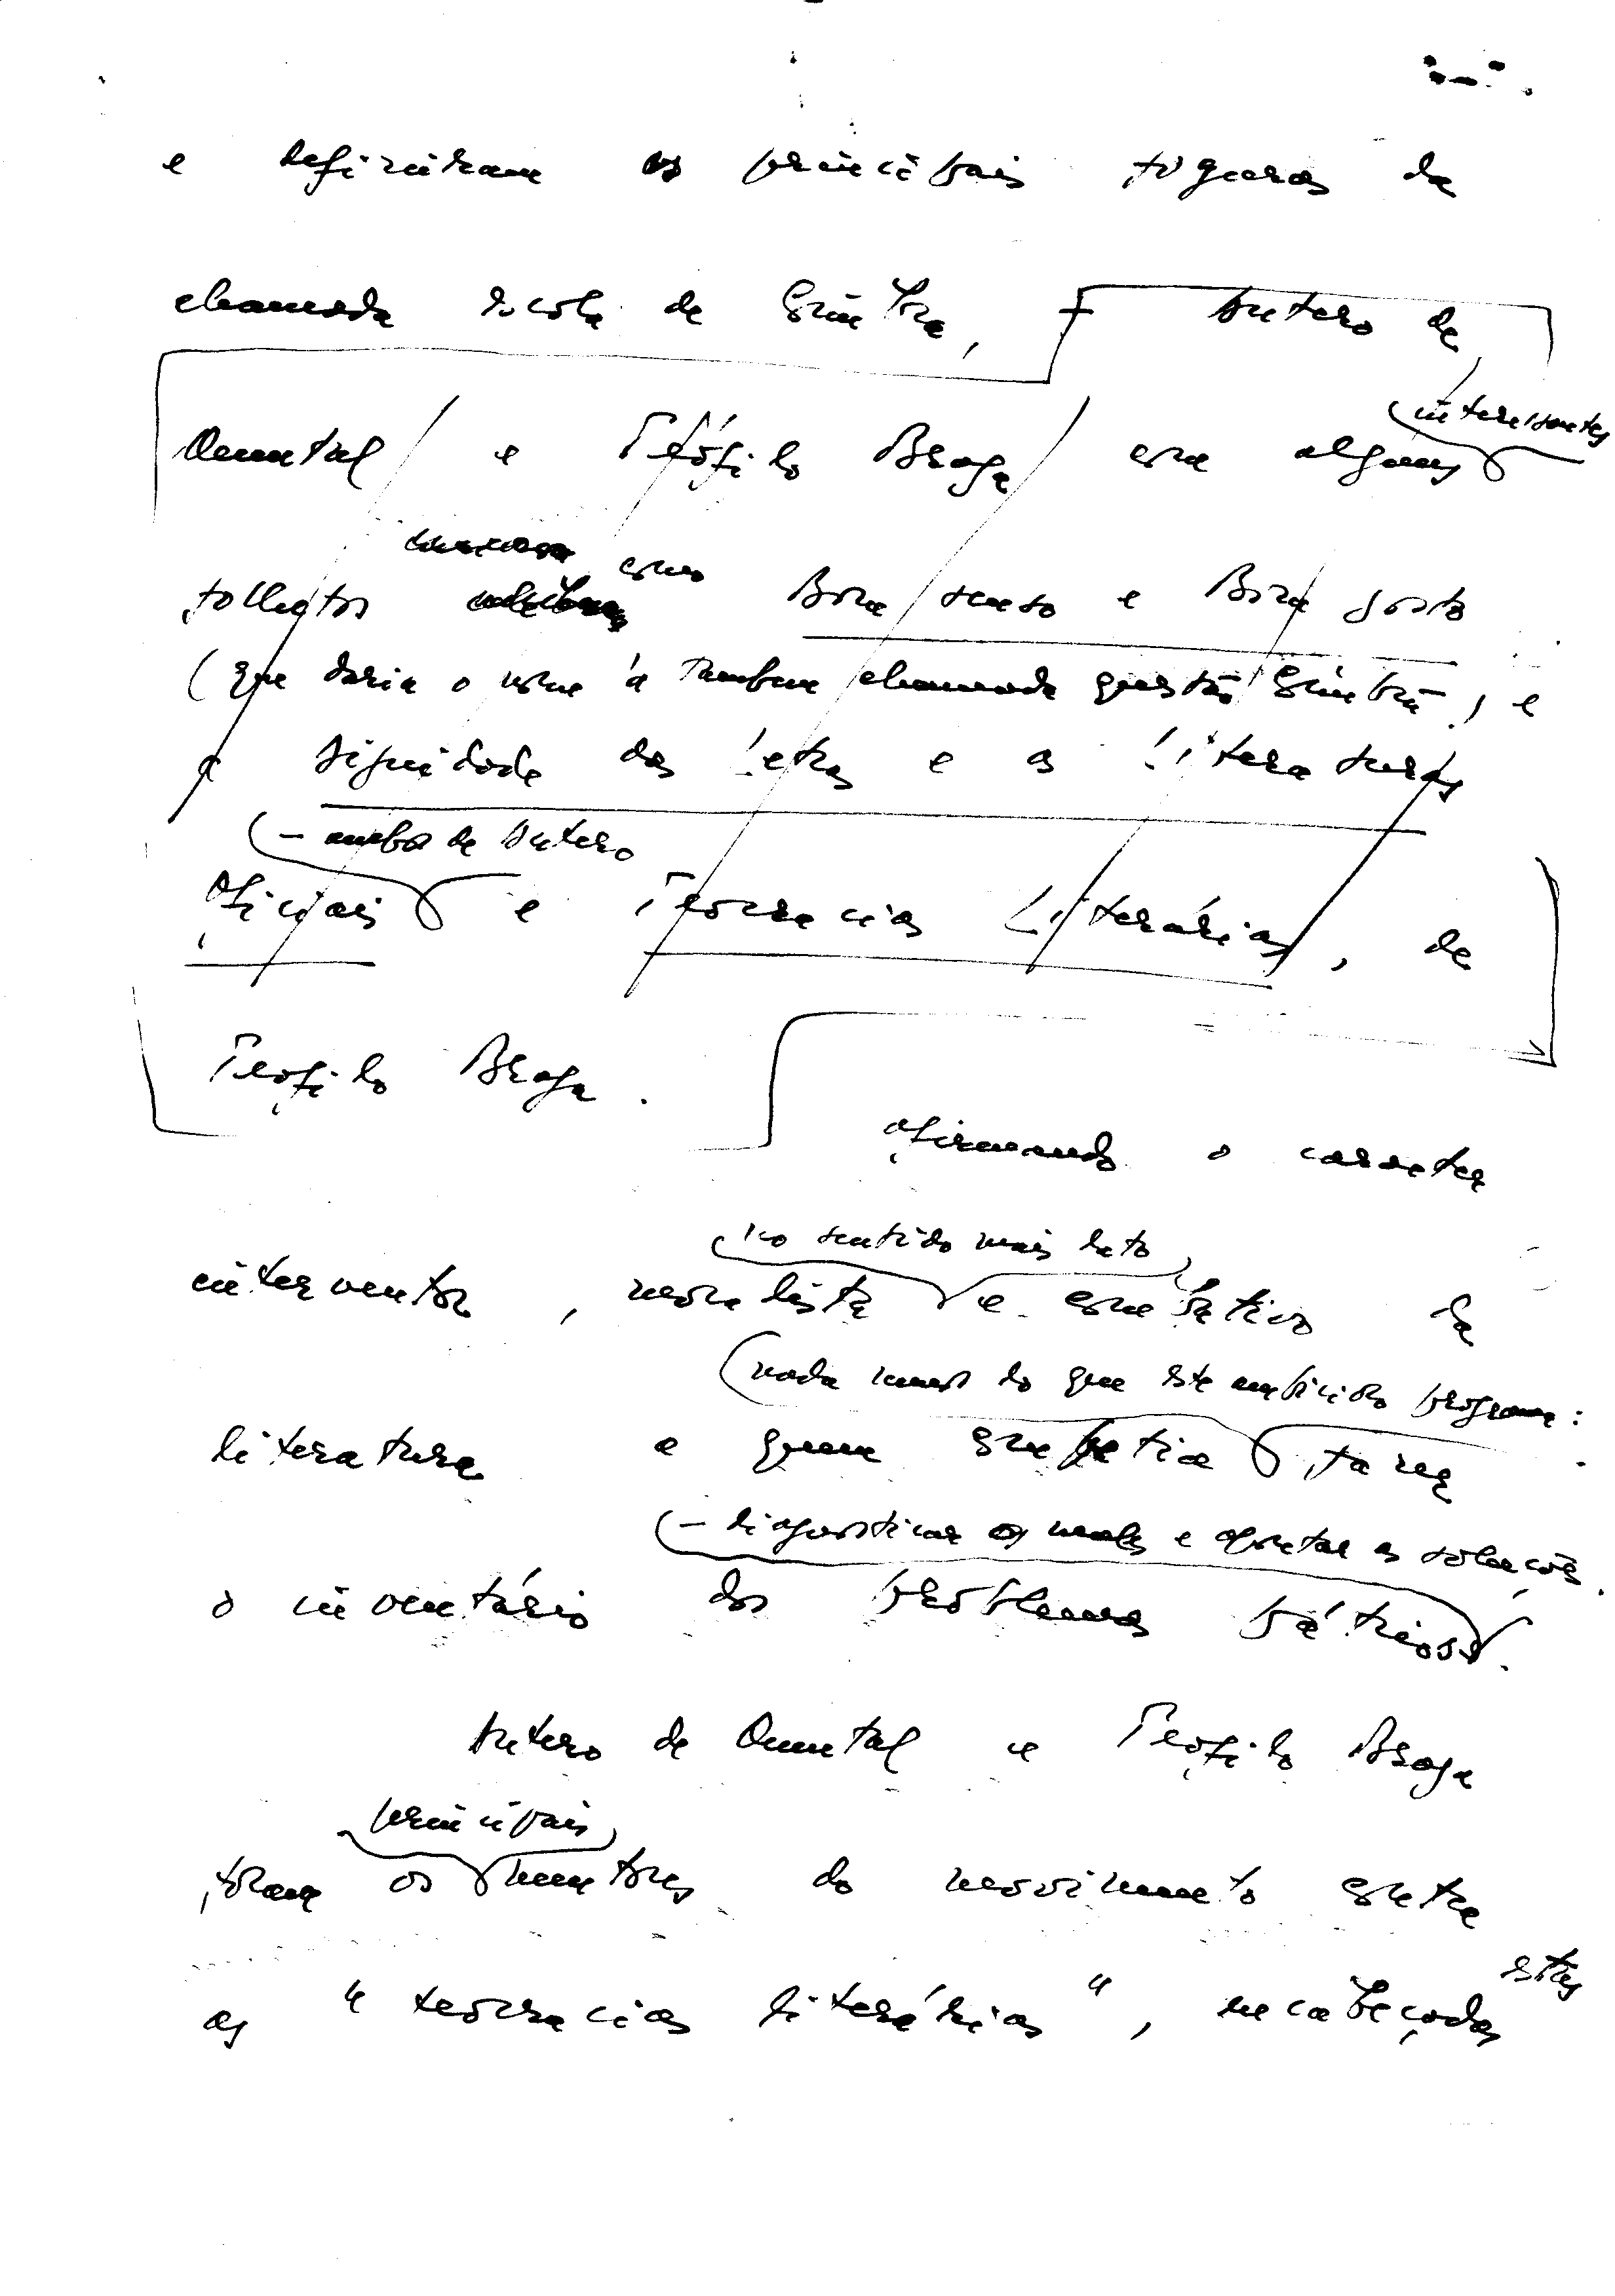 e definiram as principais figuras da
chamada escola de Coimbra, – Antero de
Quental e Teófilo Braga em alguns
interessantes
folhetos
como Bom senso e Bom gosto
(que daria o nome à também chamada questão Coimbrã) e
a Dignidade das Letras e as Literaturas
– ambos de Antero
Oficiais e Teocracias Literárias, de
Teófilo Braga.
afirmando o caracter
no sentido mais lato
interventor, moralista e combativo da
nada menos do que este ambicioso programa:
literatura a quem competia fazer
– diagnosticar os males e apontar as soluções.
o inventário dos problemas pátrios.
Antero de Quental e Teófilo Braga
principais
foram os mentores do movimento contra
estas
as "teocracias literárias", encabeçadas